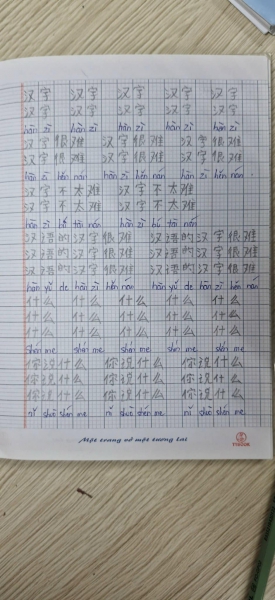 汉字 汉字 汉字 汉字 汉字
汉字 汉字 汉字 汉字 汉字
hàn zì hàn zì hàn zì hàn zì hàn zì
汉字很难 汉字很难 汉字很难
汉字很难 汉字很难 汉字很难
hàn zì hěn nán hàn zì hěn nán hàn zì hěn nán
汉字不太难 汉字不太难
汉字不太难 汉字不太难
hàn zì bú tài nán hàn zì bú tài nán
汉语的汉字很难 汉语的汉字很难
汉语的汉字很难 汉语的汉字很难
汉语的汉字很难 汉语的汉字很难
hàn yǔ de hàn zì hěn nán hàn yǔ de hàn zì hěn nán
什么 什么 什么 什么 什么
什么 什么 什么 什么 什么
什么 什么 什么 什么 什么
shén me shén me shén me shén me shén me
你说什么 你说什么 你说什么
你说什么 你说什么 你说什么
你说什么 你说什么 你说什么
nǐ shuō shén me nǐ shuō shén me nǐ shuō shén me
Một trang vở một tương lai